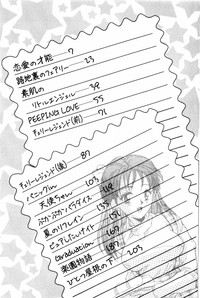 恋愛の才能 7
路地裏のフェアリー 23
素肌の
リトルエンジェル 39
PEEPING LOVE 55
チェリーレジェンド(前) 71
チェリーレジェンド(後) 87
パニックin 103
天使ちゃん 119
ぷかぷかパラダイス 135
夏のリフレイン 151
ピュアしたいナイト 167
Graduation
楽園物語 187
ひとつ屋根の下 203